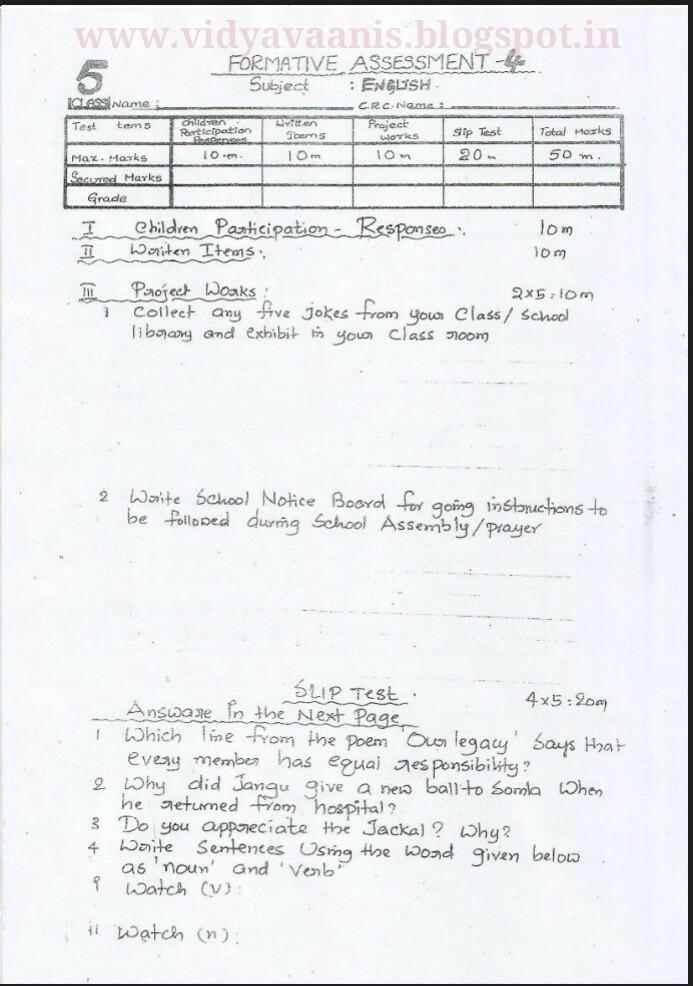 www.vidyavaanis.blogspot.in
FORMATIVE ASSESSMENT -4
5 Subject : ENGLISH.
CLASS Name : C.R.C. Name :
Test tems Children Participation Written Items Project Works Slip Test Total Marks
Max. Marks 10.m. 10m 10m 20m 50 m.
Secured Marks
Grade
I Children Participation - Responses. 10m
II Wriiten Items. 10m
III Project Works : 2x5:10m
1 Collect any five jokes from your Class/ School
library and exhibit in your Class room
2 Write School Notice Board for going instructions to
be followed during School Assembly/prayer
SLIP Test . 4x5:20m
Answare In the Next Page
1 Which line from the poem 'Our legacy' Says that
every member has equal responsibility?
2 Why did Jangu give a new ball to Somla When
he returned from hospital?
3 Do you appreciate the Jackal? Why?
4 Write Sentences Using the Word given below
as 'noun' and 'verb'
i Watch (v):
ii Watch (n):